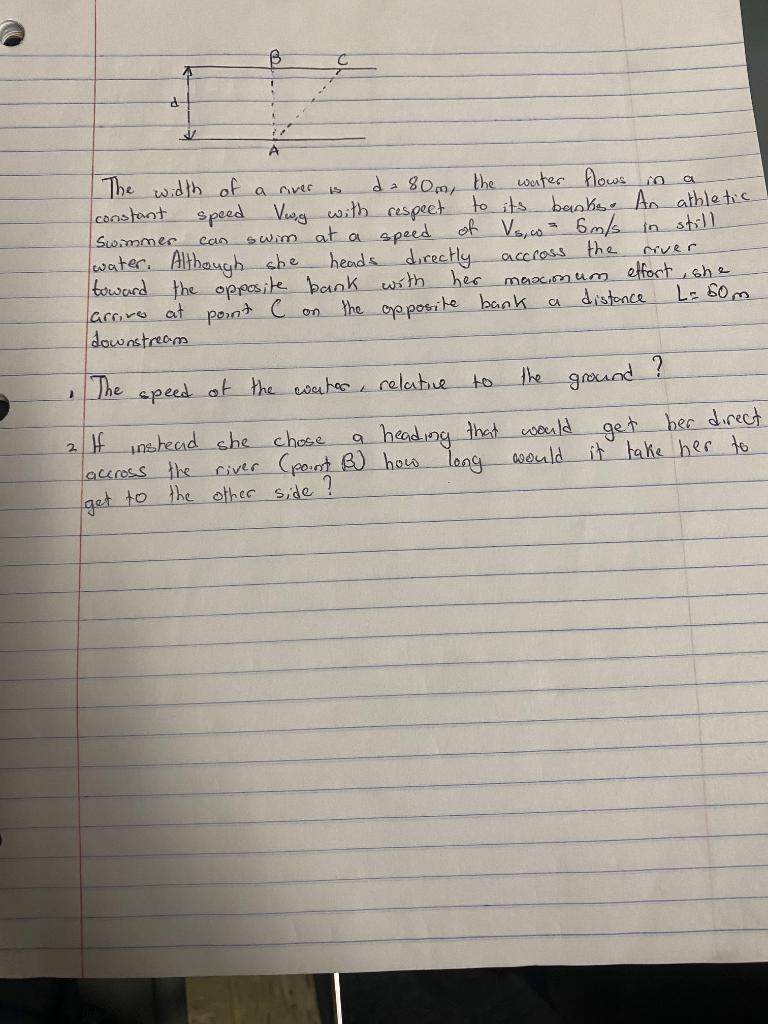 B C
d
A
The width of a river is d = 80m, the water flows in a
constant speed Vw,g with respect to its banks. An athletic
Swimmer can swim at a speed of Vs,w = 6m/s in still
water. Although she heads directly accross the river
toward the opposite bank with her maximum effort, she
arrives at point C on the opposite bank a distance L= 60m
downstream
1 The speed of the water, relative to the ground ?
2 If instead she chose a heading that would get her direct
accross the river (point B) how long would it take her to
get to the other side ?